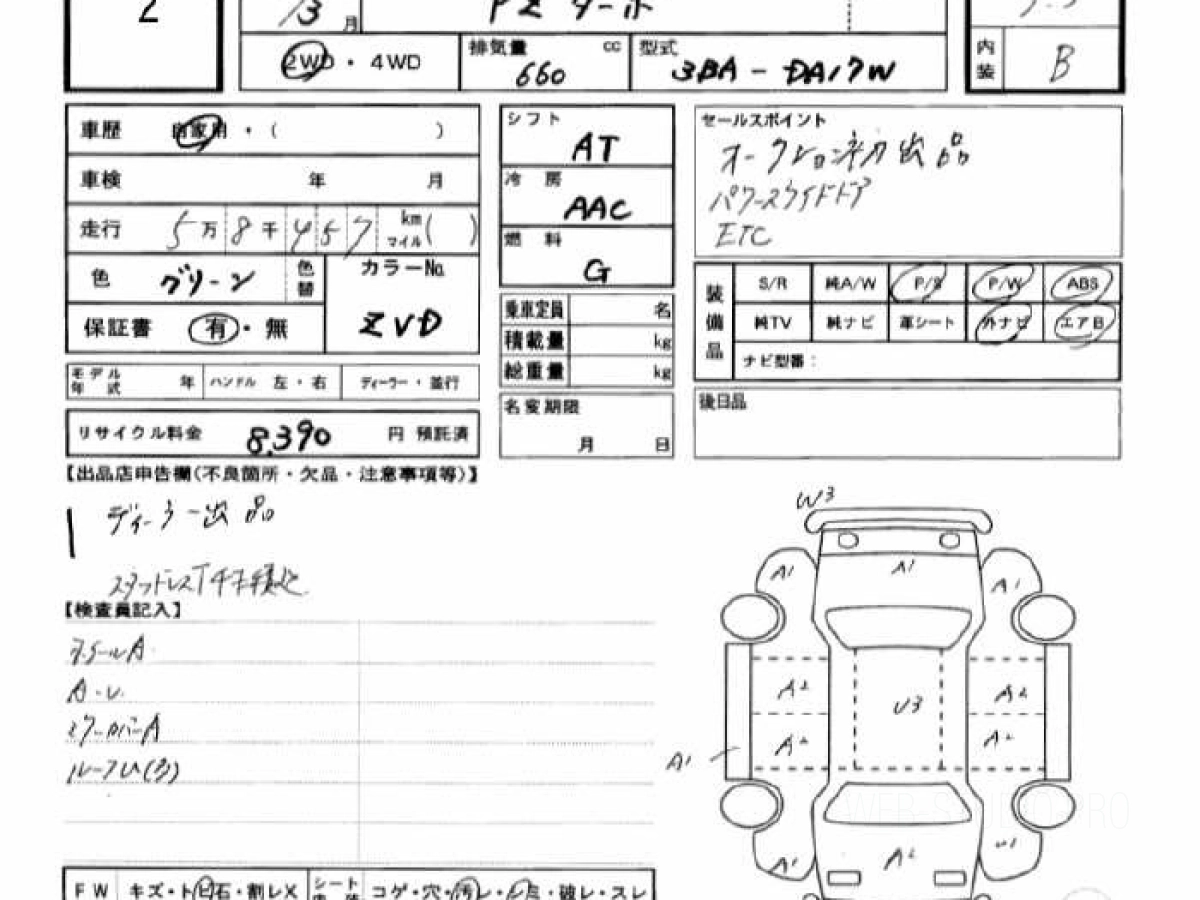 2
13 月
PZ ターボ
2WD ・ 4WD
排気量 cc
660
型式
3BA - DA17W
内装 B
車歴 自家用 ・ ( )
車検 年 月
走行 5万 8千 4 5 7 km マイル ( )
色 グリーン 色替
カラーNo
ZVD
保証書 有 ・ 無
モデル年式 年 ハンドル 左 ・ 右 ディーラー ・ 並行
リサイクル料金 8,390 円 預託済
シフト
AT
冷房
AAC
燃料
G
乗車定員 名
積載量 kg
総重量 kg
名変期限
月 日
セールスポイント
オークション初出品
パワースライドドア
ETC
装備品
S/R 純A/W P/S P/W ABS
純TV 純ナビ 革シート 外ナビ エアB
ナビ型番:
後日品
【出品店申告欄(不良箇所・欠品・注意事項等)】
ディーラー出品
スタッドレスT4本積込
【検査員記入】
ホイールA
A・U
ミラーカバーA
W3
A1
A1
A1
A2
U3
A2
A2
A2
A1
A1
A2
U1
FW キズ・トビ石・割レX シート コゲ・穴・汚レ・シミ・破レ・スレ
WEB-STUDIO PRO